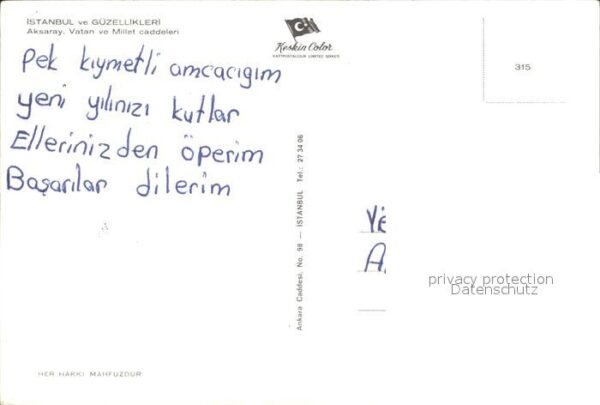 İSTANBUL ve GÜZELLİKLERİ
Aksaray, Vatan ve Millet caddeleri
Pek kıymetli amcacığım
yeni yılınızı kutlar
Ellerinizden öperim
Başarılar dilerim
Keskin Color
KARTPOSTALCILIK LIMITED ŞİRKETİ
315
Ankara Caddesi, No. 98 — İSTANBUL Tel.: 27 34 06
YE
A
privacy protection
Datenschutz
HER HAKKI MAHFUZDUR